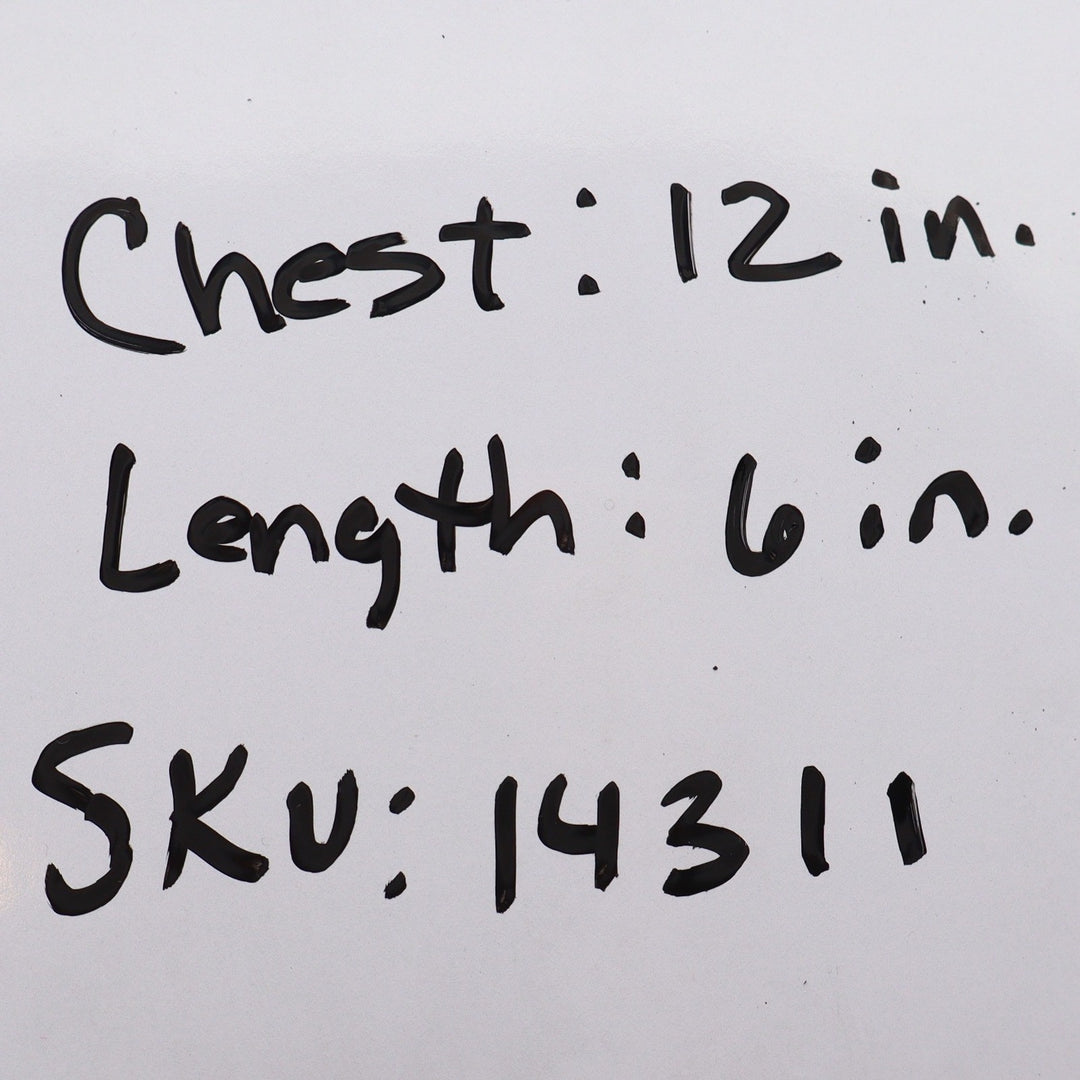 Chest: 12 in.
Length: 6 in.
SKU: 14311